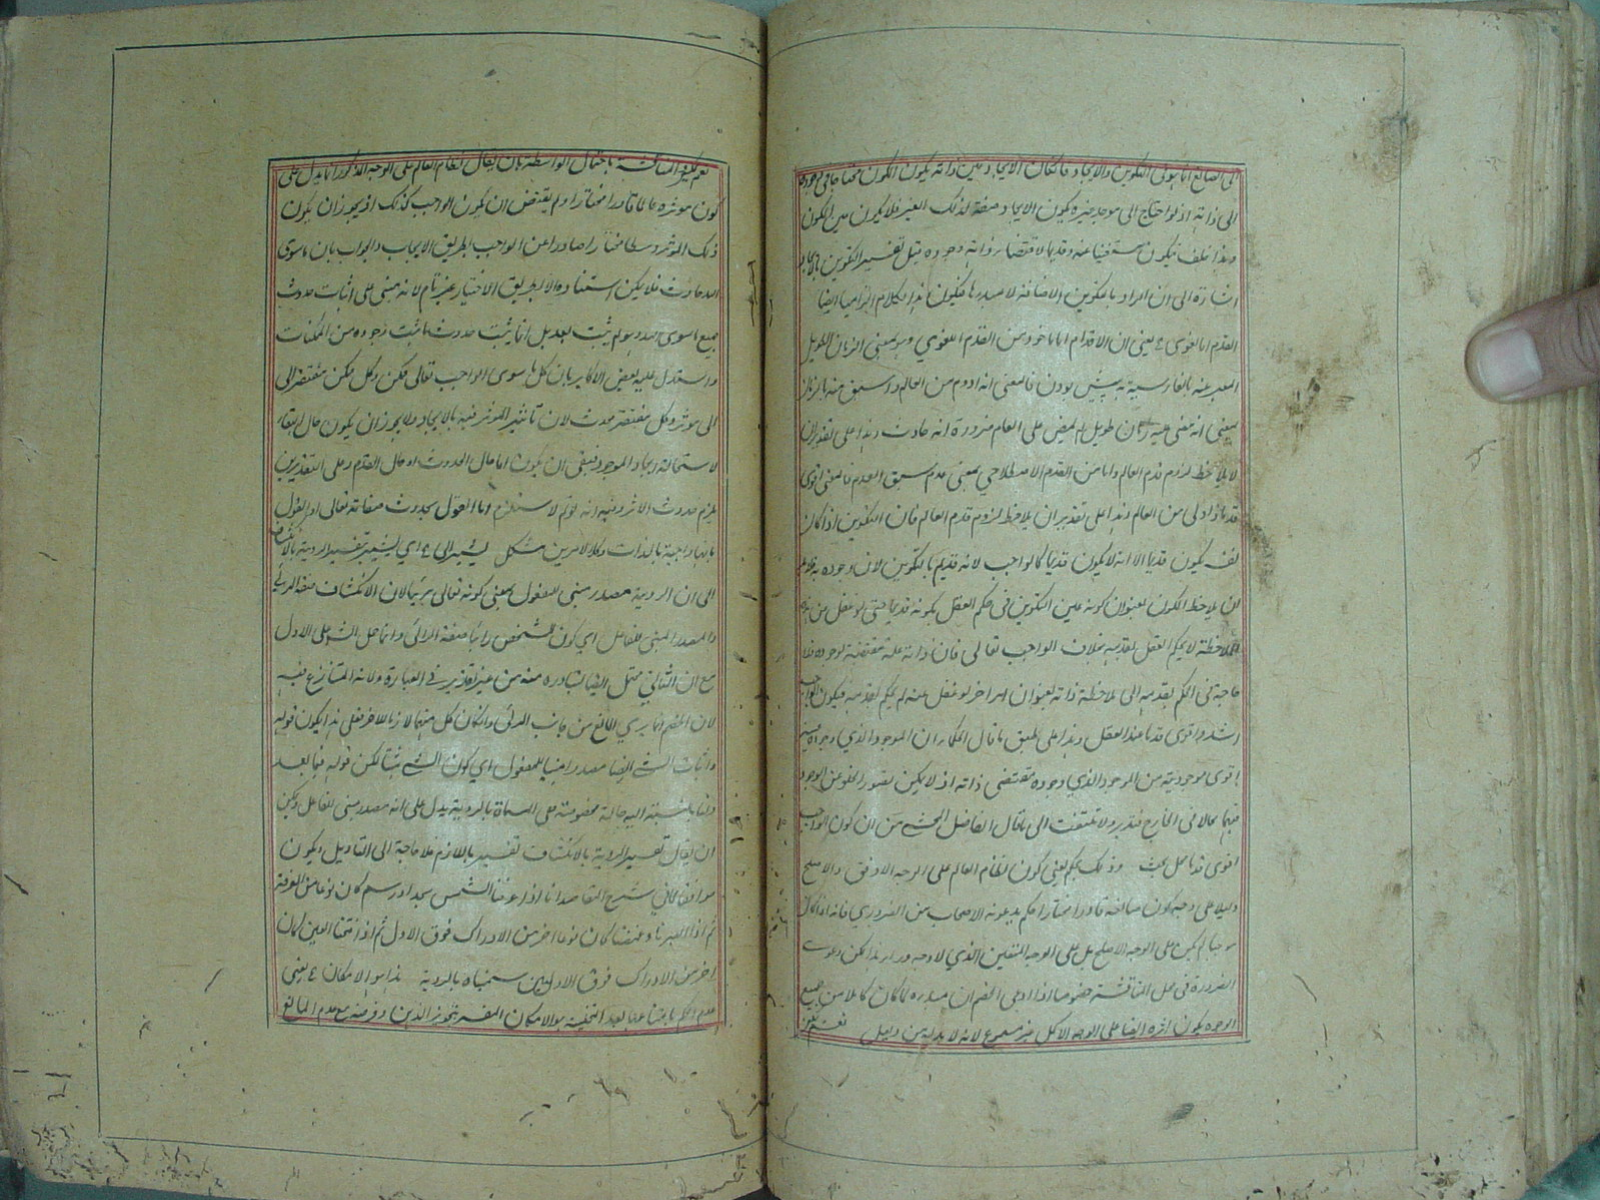 الى الصانع انما هو فى التكوين والايجاد فاذا كان الايجاد عين ذاته يكون المكون محتاجا فى وجوده
الى ذاته اذ لو احتاج الى موجد غيره يكون الايجاد صفة لذلك الغير فلا يكون عين المكون
وهذا خلف فيكون مستغنيا عنه وقديما لاقتضاء ذاته وجوده قيل تفسير التكوين بالايجاد
اشارة الى ان المراد بالتكوين الاضافة لا مبدءها فيكون هذا الكلام الزاميا ايضا
القدم اما لغوى ع يعنى ان الاقدام اما ماخوذ من القدم اللغوي وهو بمعنى الزمان الطويل
المعبر عنه بالفارسية به پيش بودن فالمعنى انه ادوم من العالم واسبق منه بالزمان
بمعنى انه مضى عليه زمان طويل لم يمض على العالم ضرورة انه حادث وهذا على تقدير ان
لا يلاحظ لزوم قدم العالم واما من القدم الاصطلاحي بمعنى عدم سبق العدم فالمعنى اقوى
قدما واولى من العالم وهذا على تقدير ان يلاحظ لزوم قدم العالم فان التكوين اذا كان
يكون قديما الا انه لا يكون قديما كالواجب لانه قديم بالتكوين لان وجوده
ان يلاحظ المكون بعنوان كونه عين التكوين فى حكم العقل بكونه قديما حتى لو غفل من هذه
الملاحظة لا يحكم العقل بقدمه بخلاف الواجب تعالى فان ذاته علة مقتضية لوجوده فلا
حاجة فى الحكم بقدمه الى ملاحظة ذاته بعنوان امر اخر لو غفل عنه لم يحكم بقدمه فيكون الواجب
اشد واقوى قدما عند العقل وهذا على طبق ما قال الحكماء ان الموجود الذي وجوده عينه
اقوى موجودية من الموجود الذي وجوده مقتضى ذاته اذ لا يمكن تصور الخلو عن الوجود
فيهما بحال فى الخارج فتدبر ولا تلتفت الى ما قال الفاضل المحشى من ان كون الواجب
اقوى قدما محل بحث وذلك بحكم يعنى كون نظام العالم على الوجه الاوفق والاصلح
دليلا على وجه كون صانعه قادرا مختارا حكم يدعونه الاصحاب من الضروري فانه اذا كان
موجبا لم يكن على الوجه الاصلح بل على الوجه المتعين الذي لا وجه وراءه لكن دعوى
الضرورة فى محل المناقشة خصوصا اذا ادعى الخصم ان مبدءه لما كان كاملا من جميع
الوجوه يكون اثره ايضا على الوجه الاكمل غير مسموع لانه لا بد له من دليل
نعم يمكن
نعم يمكن المناقشة باحتمال الواسطة بان يقال نظام العالم على الوجه المذكور انما يدل على
كون موثره عالما قادرا مختارا ولم يقتض ان يكون الواجب كذلك اذ يجوز ان يكون
ذلك الموثر وسطا مختارا صادرا عن الواجب بطريق الايجاب والجواب بان ما سوى
الله حادث فلا يمكن استناده الا بطريق الاختيار غير تام لانه مبنى على اثبات حدوث
جميع ما سوى الله وهو لم يثبت بعد بل انما يثبت حدوث ما ثبت وجوده من الممكنات
واستدل عليه بعض الاكابر بان كل ما سوى الواجب تعالى ممكن وكل ممكن مفتقر الى
الى موثر وكل مفتقر محدث لان تاثير الموثر فيه بالايجاد ولا يجوز ان يكون حال البقاء
لاستحالة ايجاد الموجود فبقى ان يكون اما حال الحدوث او حال العدم وعلى التقديرين
يلزم حدوث الاثر وفيه انه لو تم لاستلزم اما القول بحدوث صفاته تعالى او القول
بانها واجبة بالذات وكلا الامرين مشكل يشير الى ع اي يشير بتفسير الروية بالانكشاف
الى ان الروية مصدر مبنى للمفعول بمعنى كونه تعالى مرئيا لان الانكشاف صفة المرئى
والمصدر المبنى للفاعل اي كون الشخص رائيا صفة الرائى وانما حمل الشارح على الاول
مع ان الثاني محتمل ايضا لتبادره منه من غير تقدير فى العبارة ولانه المتنازع فيه
لان الخصم انما يدعي المانع من جانب المرئى وان كان كل منهما لازما للاخر فعلى هذا يكون قوله
واثبات الشئ ايضا مصدرا مبنيا للمفعول اي كون الشئ مثبتا لكن قوله فيما بعد
ولنا بالنسبة اليه حالة مخصوصة هى المسماة بالروية يدل على انه مصدر مبنى للفاعل ويمكن
ان يقال تفسير الروية بالانكشاف تفسير باللازم فلا حاجة الى التاويل ويكون
موافقا لما فى شرح المقاصد انا اذا عرفنا الشمس بحد او رسم كان نوعا من المعرفة
ثم اذا ابصرناه وغمضنا كان نوعا اخر من الادراك فوق الاول ثم اذا فتحنا العين كان
اخر من الادراك فوق الاولين سميناه بالروية هذا هو الامكان ع يعنى
عدم الحكم بامتناعها بعد التخلية هو الامكان المفسر بتجويز الذهن وفرضه مع عدم المانع